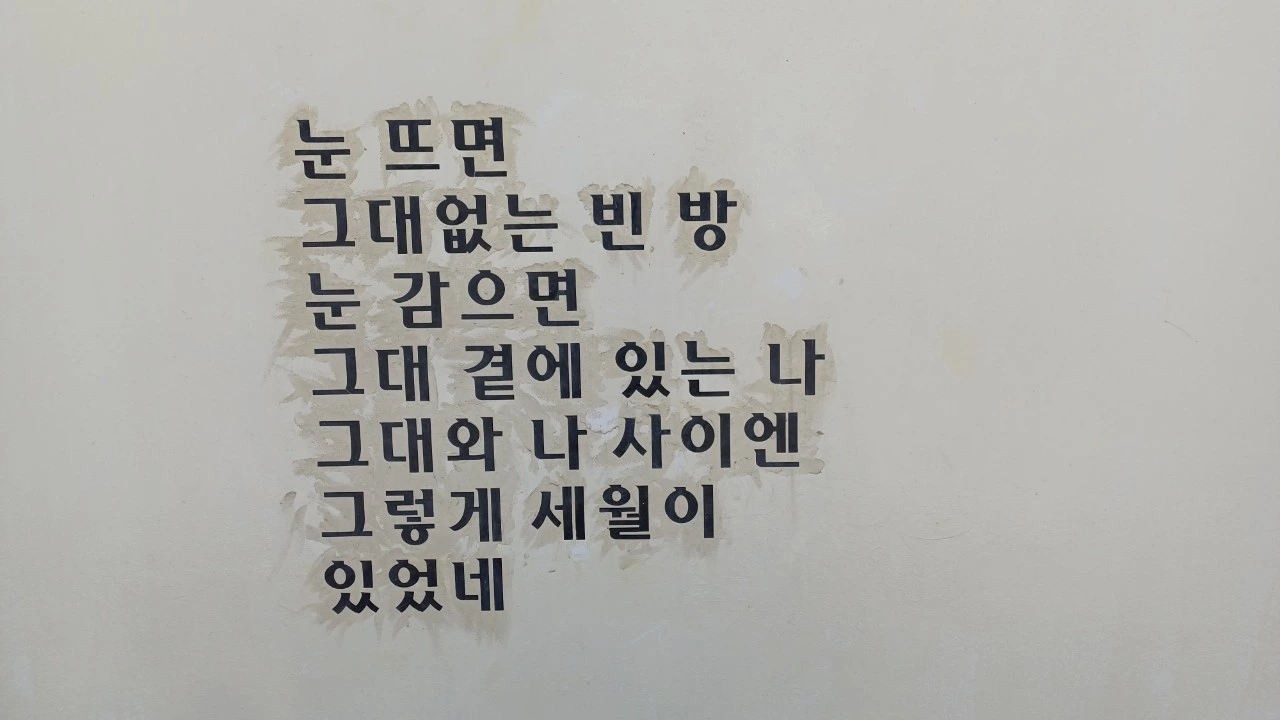 눈 뜨면
그대없는 빈 방
눈 감으면
그대 곁에 있는 나
그대와 나 사이엔
그렇게 세월이
있었네